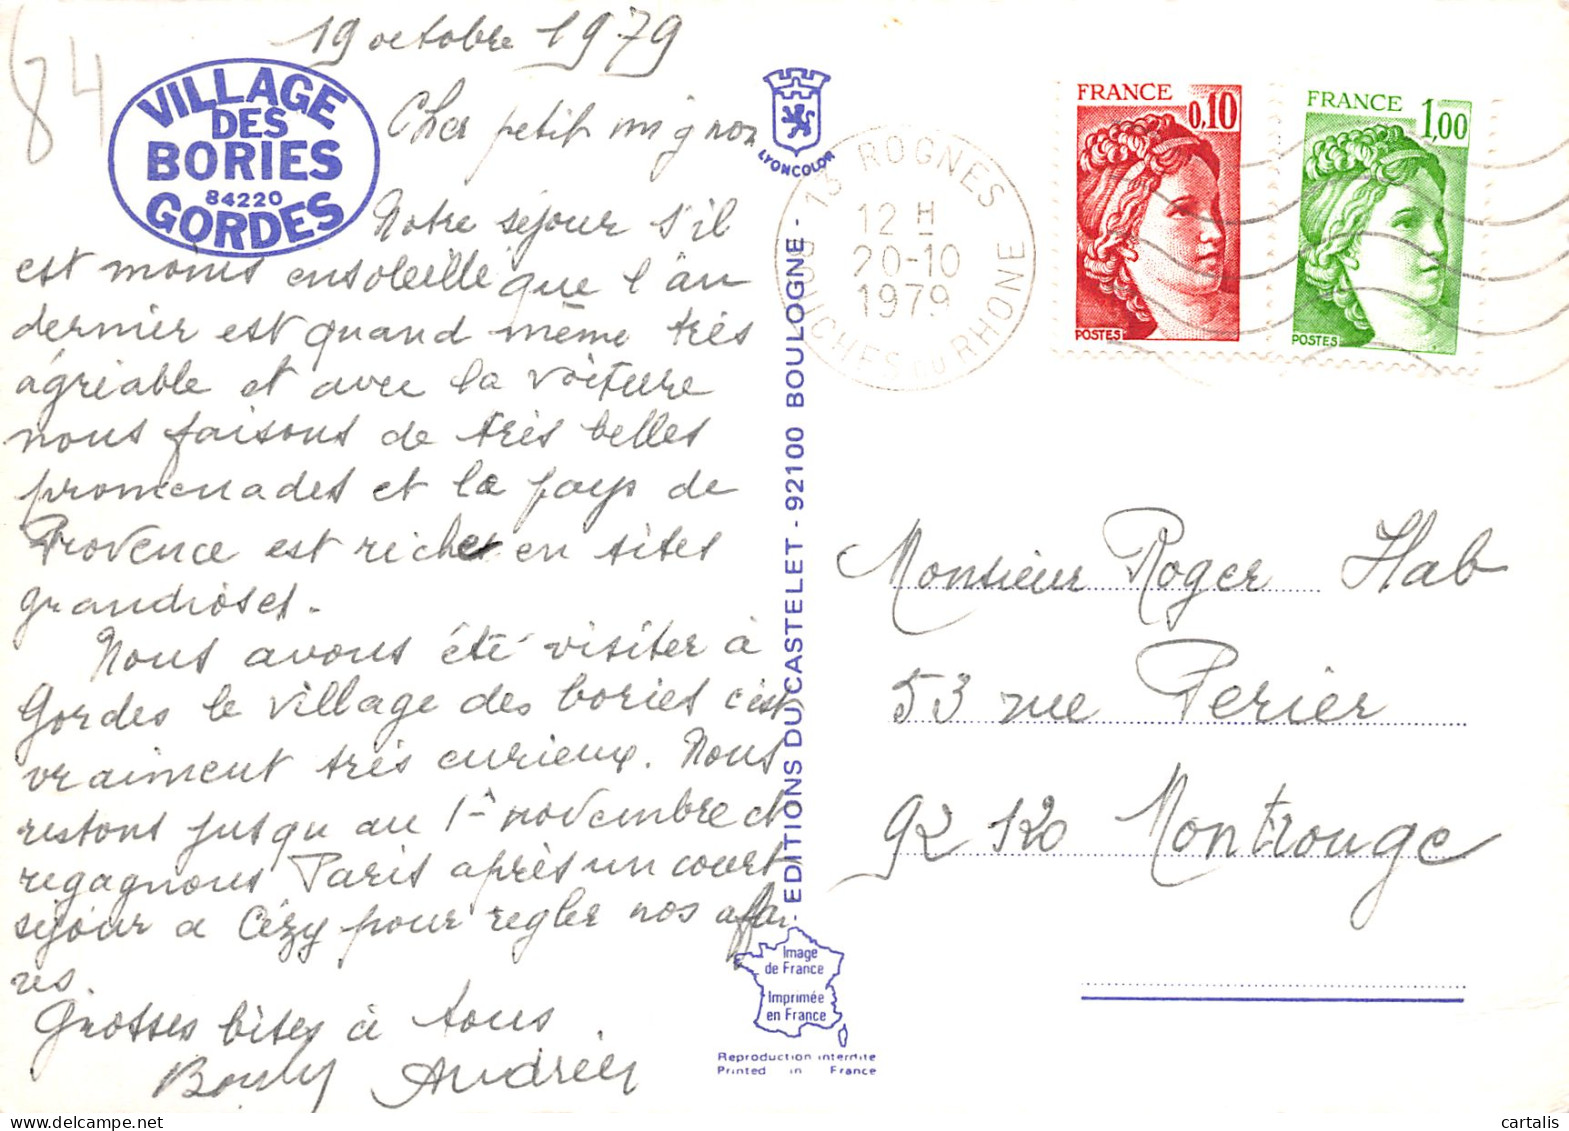 84
19 octobre 1979
VILLAGE
DES
BORIES
84220
GORDES
Cher petit mignon
Notre séjour s'il
est moins ensoleillé que l'an
dernier est quand même très
agréable et avec la voiture
nous faisons de très belles
promenades et le pays de
Provence est riche en sites
grandioses.
Nous avons été visiter à
Gordes le village des bories c'est
vraiment très curieux. Nous
restons jusqu au 1er novembre et
regagnons Paris après un court
séjour a Cézy pour regler nos affai
res.
Grosses bises à tous
Andrée
LYONCOLOR
EDITIONS DU CASTELET - 92100 BOULOGNE -
Image
de France
Imprimée
en France
Reproduction interdite
Printed in France
13 ROGNES
12 H
20-10
1979
BOUCHES DU RHONE
FRANCE
0,10
POSTES
FRANCE
1,00
POSTES
Monsieur Roger Hab
53 rue Perier
92 120 Montrouge
cartalis